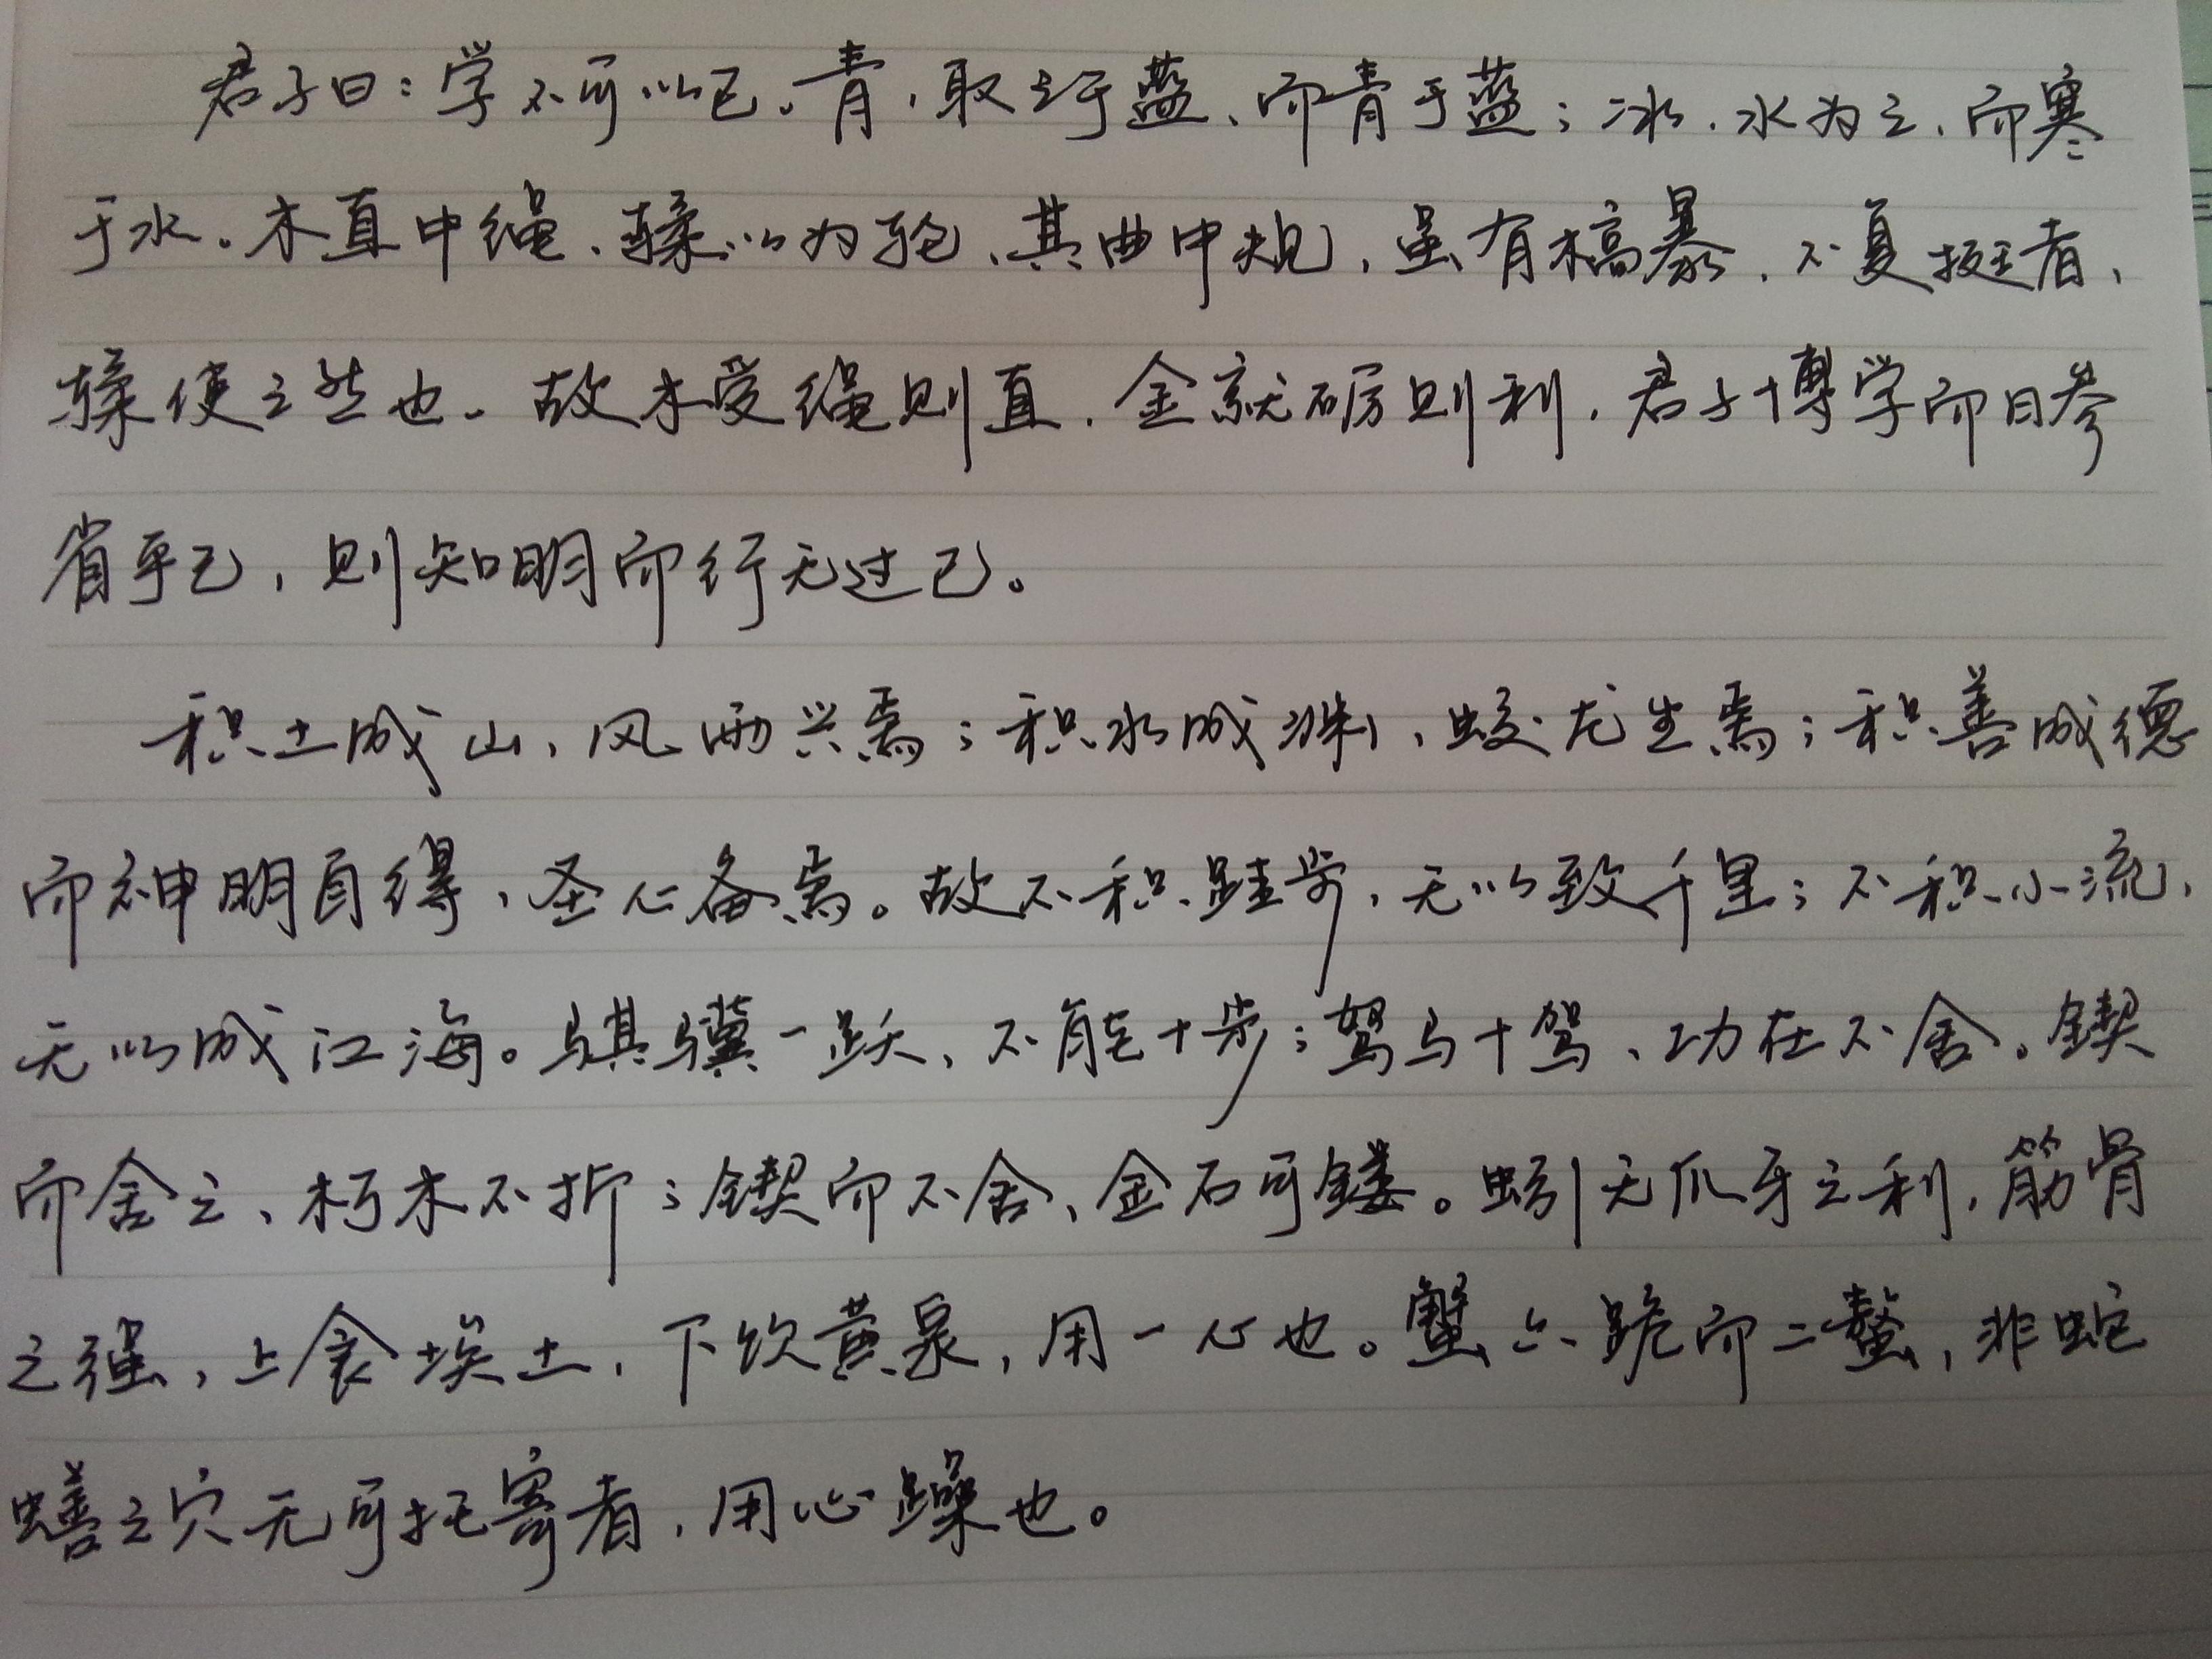 君子曰：学不可以已。青，取之于蓝，而青于蓝；冰，水为之，而寒
于水。木直中绳，輮以为轮，其曲中规，虽有槁暴，不复挺者，
輮使之然也。故木受绳则直，金就砺则利，君子博学而日参
省乎己，则知明而行无过已。
积土成山，风雨兴焉；积水成渊，蛟龙生焉；积善成德
而神明自得，圣心备焉。故不积跬步，无以致千里；不积小流，
无以成江海。骐骥一跃，不能十步；驽马十驾，功在不舍。锲
而舍之，朽木不折；锲而不舍，金石可镂。蚓无爪牙之利，筋骨
之强，上食埃土，下饮黄泉，用一心也。蟹六跪而二螯，非蛇
蟮之穴无可托寄者，用心躁也。